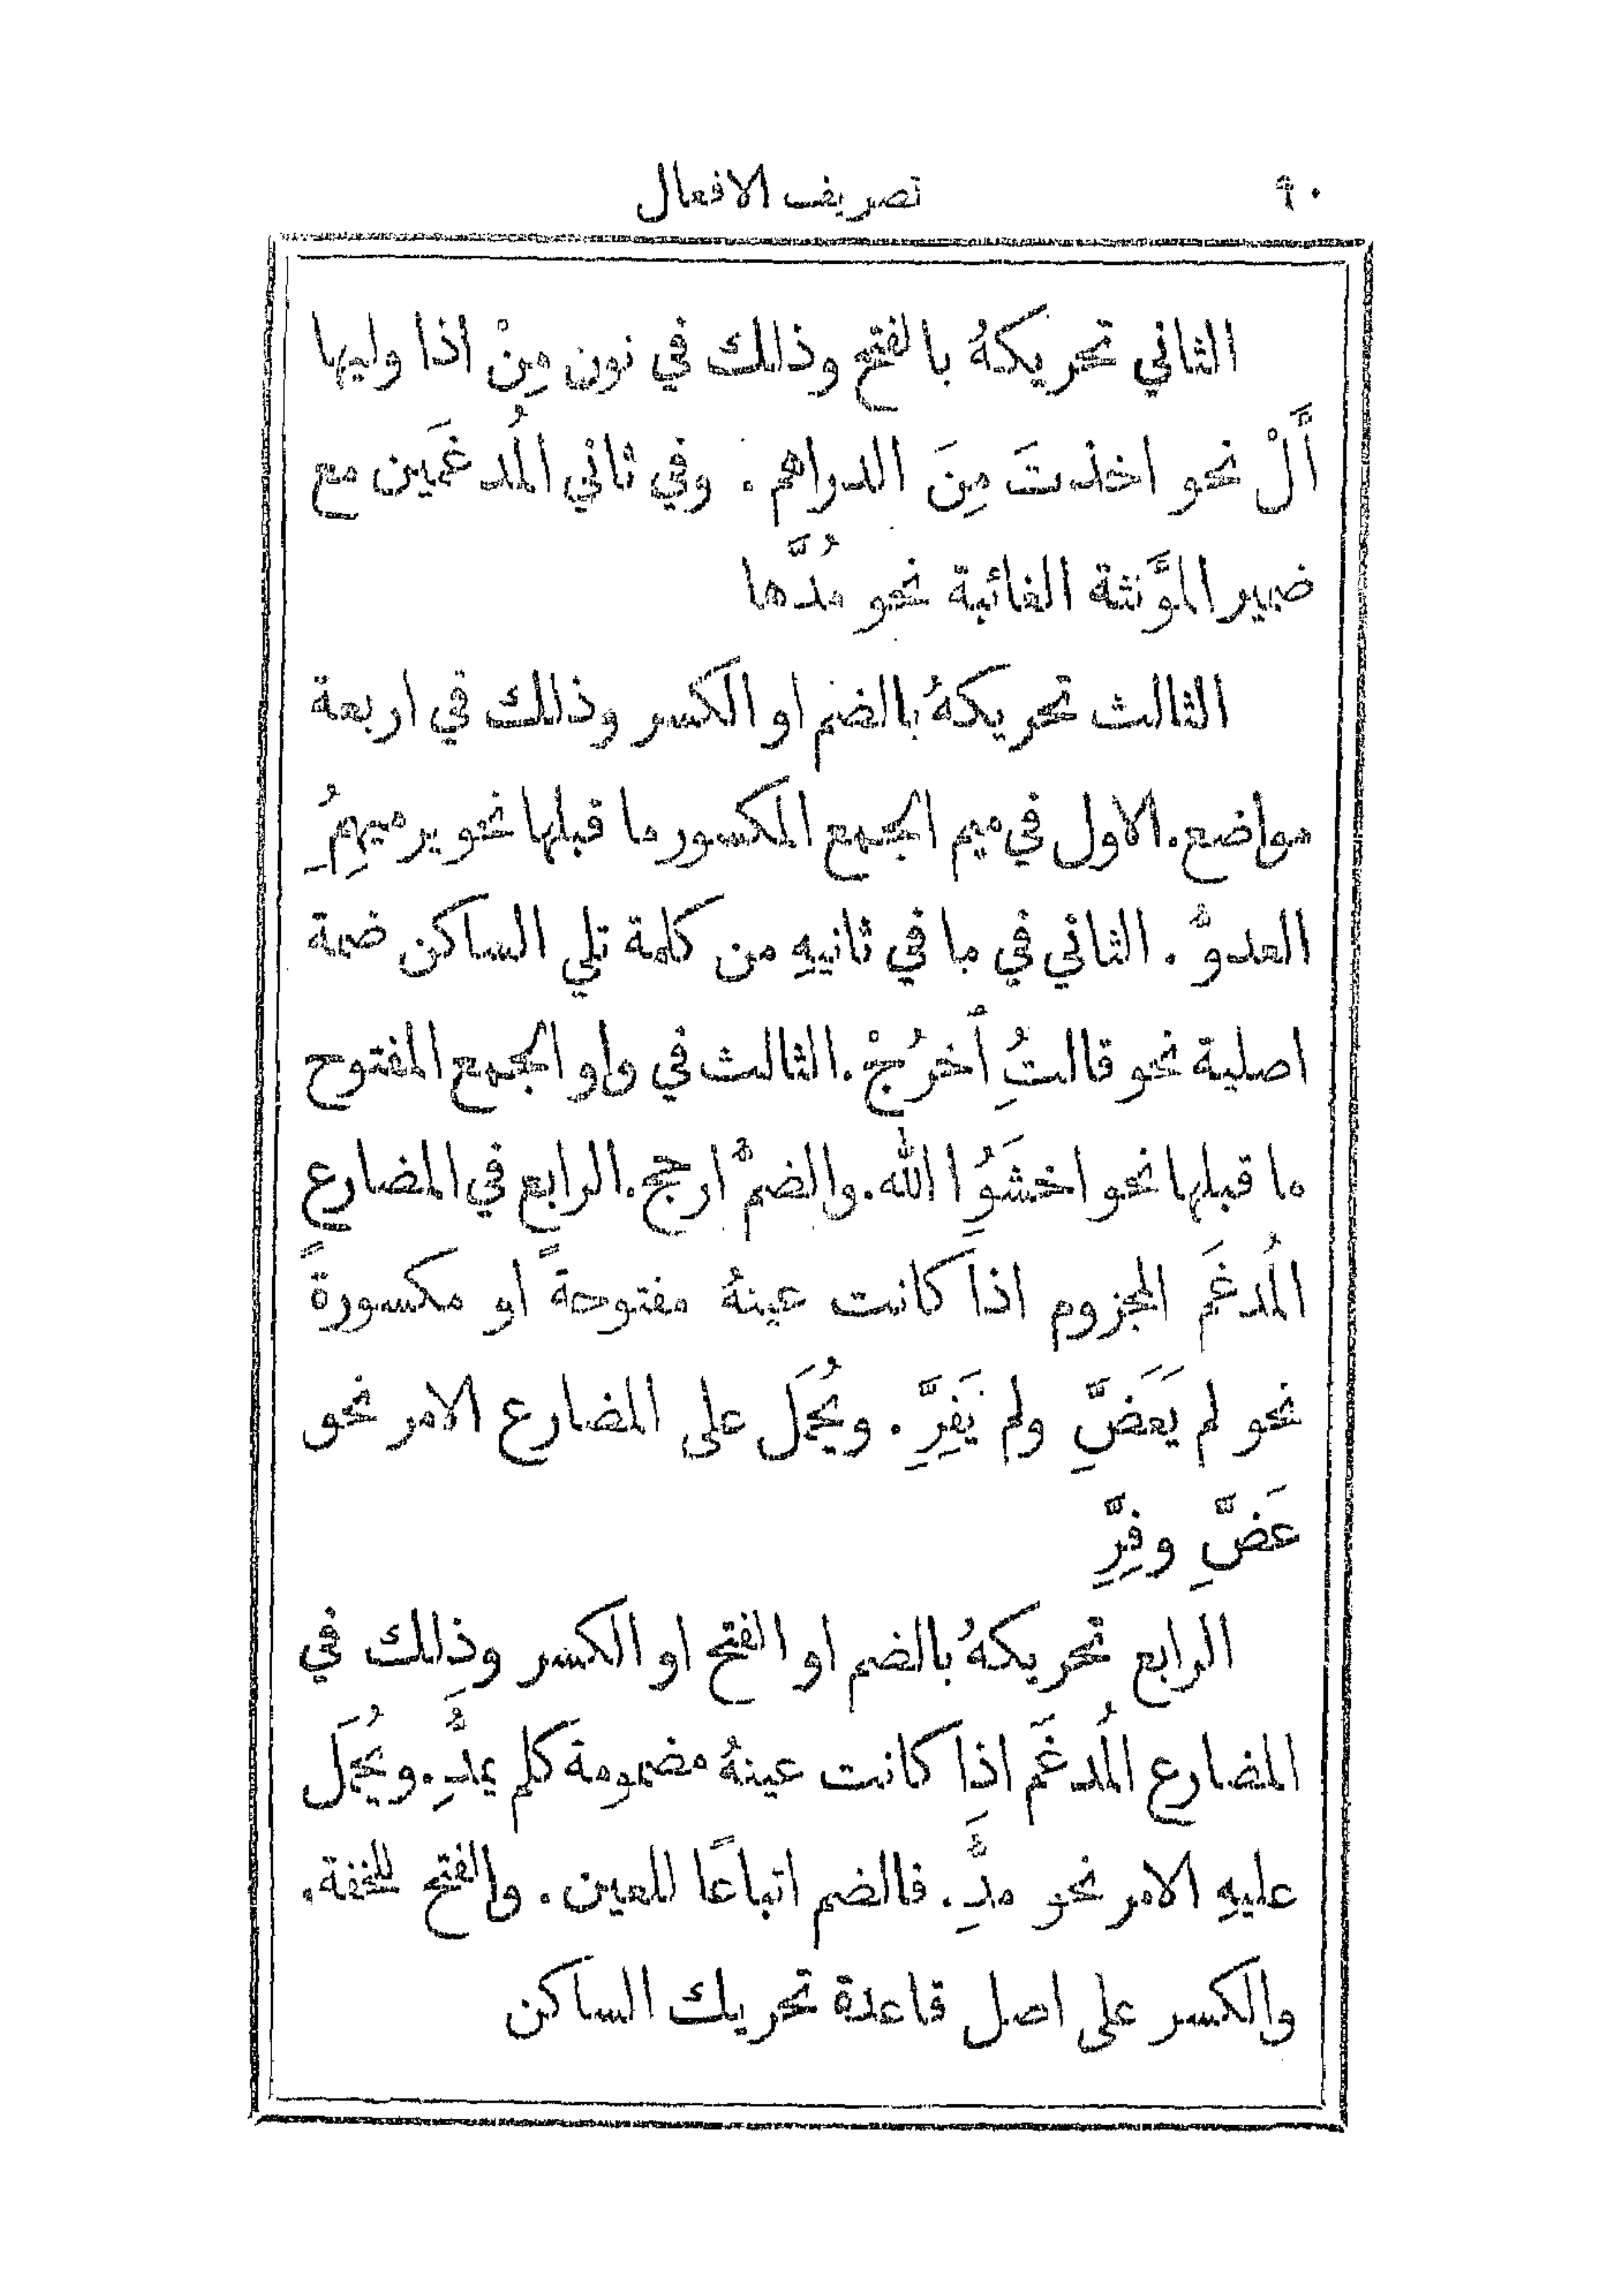 ٩٠ تصريف الافعال
الثاني تحريكهُ بالفتح وذلك في نون مِنْ اذا وليها
أَلْ نحو اخذتَ مِنَ الدراهم. وفي ثاني المُدغَمَين مع
ضمير المؤَّنثة الغائبة نحو مُدَّها
الثالث تحريكهُ بالضم او الكسر وذلك في اربعة
مواضع. الاول في ميم الجمع المكسور ما قبلها نحو يرميهِمُِ
العدوُّ. الثاني في ما في ثانيهِ من كلمة تلي الساكن ضمة
اصلية نحو قالتُِ أُخرُجْ. الثالث في واو الجمع المفتوح
ما قبلها نحو اخشَوُِا الله. والضمُّ ارجح. الرابع في المضارع
المُدغَم المجزوم اذا كانت عينهُ مفتوحةً او مكسورةً
نحو لم يَعَضَِّ ولم يَفِرَِّ. ويُحمَل على المضارع الامر نحو
عَضَِّ وفِرَِّ
الرابع تحريكهُ بالضم او الفتح او الكسر وذلك في
المضارع المُدغَم اذا كانت عينهُ مضمومة كلم يمدَُِّ. ويُحمَل
عليهِ الامر نحو مدَُِّ. فالضم اتباعًا للعين. والفتح للخفة.
والكسر على اصل قاعدة تحريك الساكن